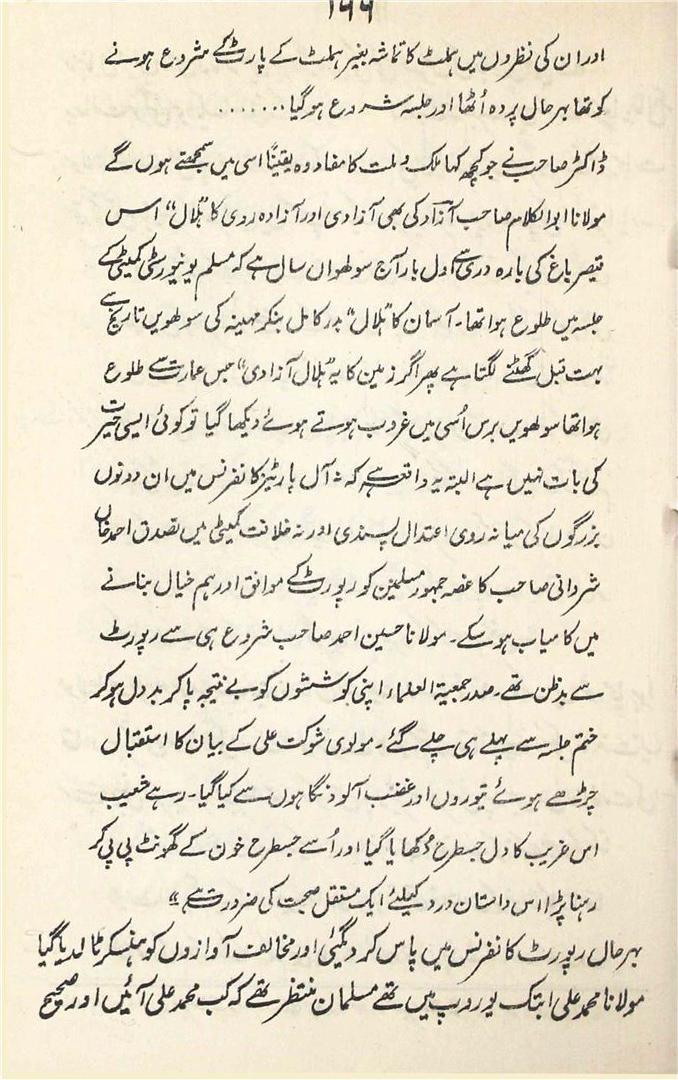 ۱۶۶
اور ان کی نظروں میں ہملٹ کا تماشہ بغیر ہملٹ کے پارٹ کے شروع ہونے
کو تھا بہر حال پردہ اُٹھا اور جلسہ شروع ہوگیا .......
ڈاکٹر صاحب نے جو کچھ کہا ملک و ملت کا مفاد وہ یقیناً اسی میں سمجھتے ہوں گے
مولانا ابوالکلام صاحب آزاد کی بھی آزادی اور آزادہ روی کا "ہلال" اس
قیصر باغ کی بارہ دری سے اول بار آج سولھواں سال ہے کہ مسلم یونیورسٹی کمیٹی کے
جلسہ میں طلوع ہوا تھا۔ آسمان کا "ہلال" بدر کامل بنکر مہینہ کی سولھویں تاریخ سے
بہت قبل گھٹنے لگتا ہے پھر اگر زمین کا یہ "ہلال آزادی" جس عمارت سے طلوع
ہوا تھا سولھویں برس اُسی میں غروب ہوتے ہوئے دیکھا گیا تو کوئی ایسی حیرت
کی بات نہیں ہے البتہ یہ واقعہ ہے کہ نہ آل پارٹیز کانفرنس میں ان دونوں
بزرگوں کی میانہ روی اعتدال پسندی اور نہ خلافت کمیٹی میں تصدق احمد خاں
شروانی صاحب کا غصہ جمہور مسلمین کو رپورٹ کے موافق اور ہم خیال بنانے
میں کامیاب ہو سکے۔ مولانا حسین احمد صاحب شروع ہی سے رپورٹ
سے بدظن تھے۔ صدر جمعیۃ العلماء اپنی کوششوں کو بے نتیجہ پا کر بددل ہوکر
ختم جلسہ سے پہلے ہی چلے گئے۔ مولوی شوکت علی کے بیان کا استقبال
چڑھے ہوئے تیوروں اور غضب آلود نگاہوں سے کیا گیا۔ رہے شعیب
اس غریب کا دل جسطرح دُکھایا گیا اور اُسے جسطرح خون کے گھونٹ پی پی کر
رہنا پڑا اس داستان درد کیلئے ایک مستقل صحبت کی ضرورت ہے"
بہر حال رپورٹ کانفرنس میں پاس کر دیگئی اور مخالف آوازوں کو ہنسکر ٹالدیا گیا
مولانا محمد علی ابتک یوروپ میں تھے مسلمان منتظر تھے کہ کب محمد علی آئیں اور صحیح